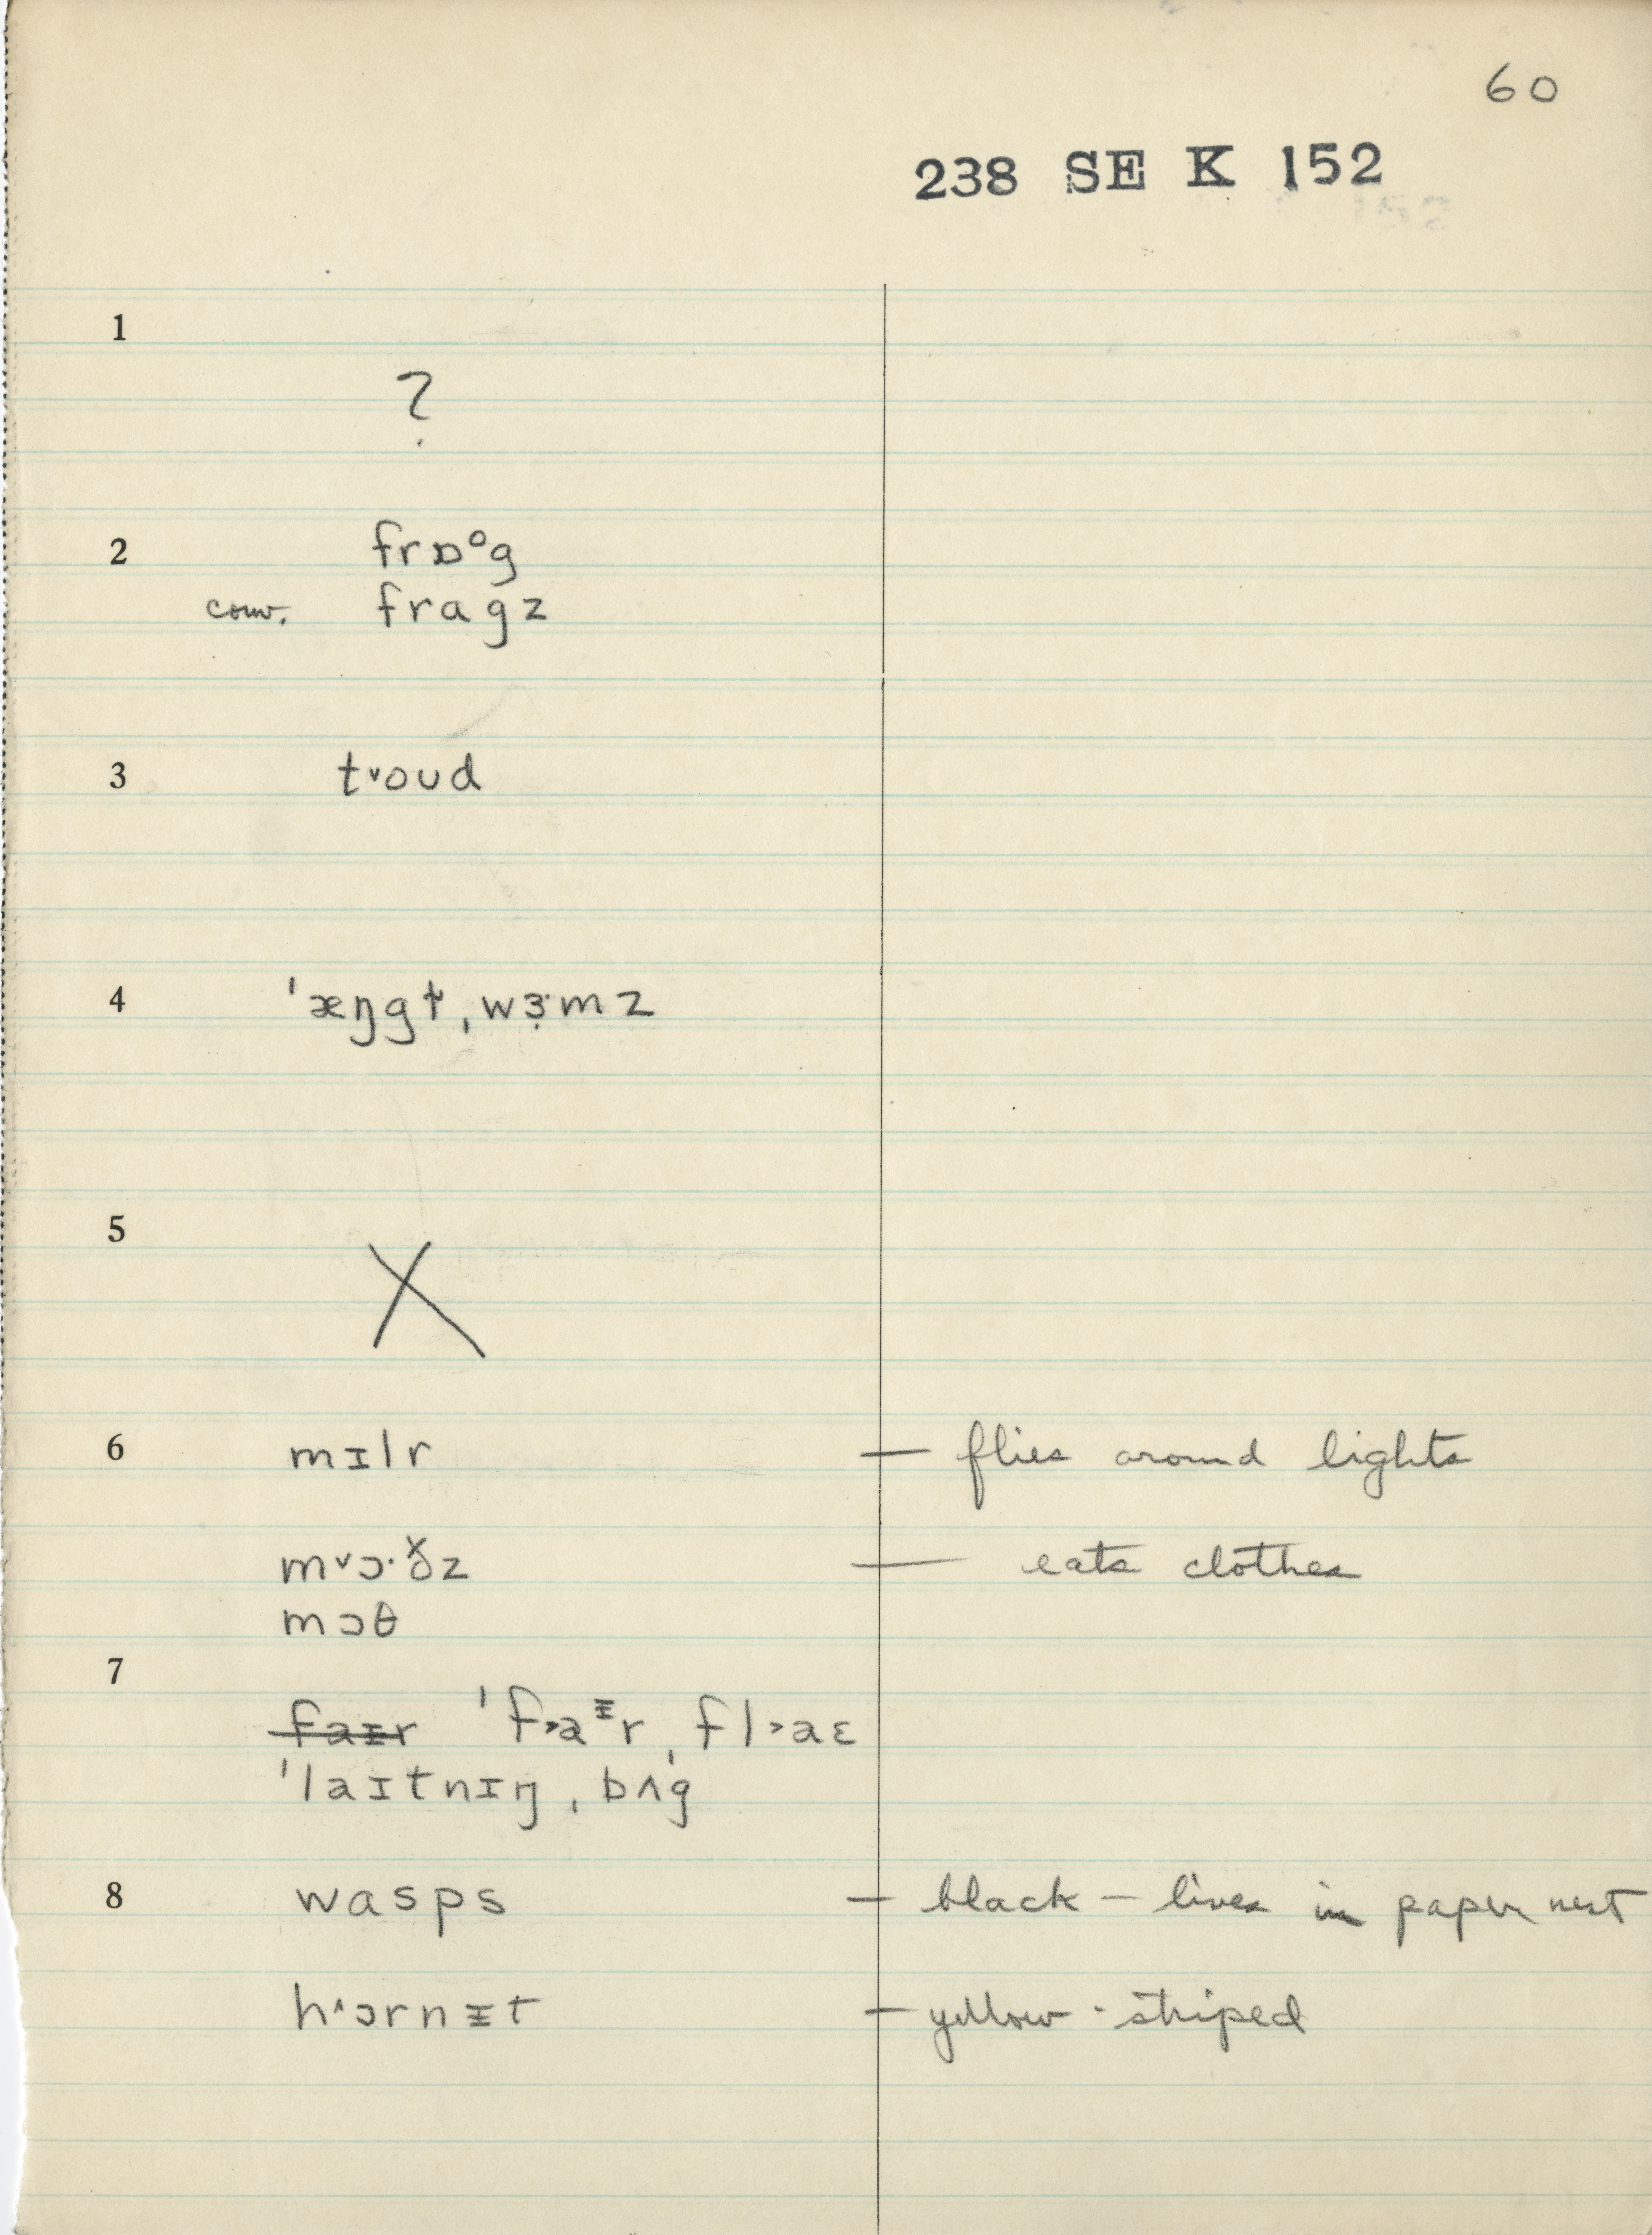 60
238 SE K 152
1
?
2 frɒᵒg
conv. fragz
3 t˅oud
4 ˈæŋgɫ̩ˌwɜ˞ːmz
5 X
6 mɪlr — flies around lights
m˅ɔ·ð̌z — eats clothes
mɔθ
7
faᵻr ˈf˃aᵻrˌfl˃aɛ
ˈlaɪtnɪŋˌbʌ'g
8 wasps — black — lives in paper nest
h˄ɔrnᵻt — yellow-striped